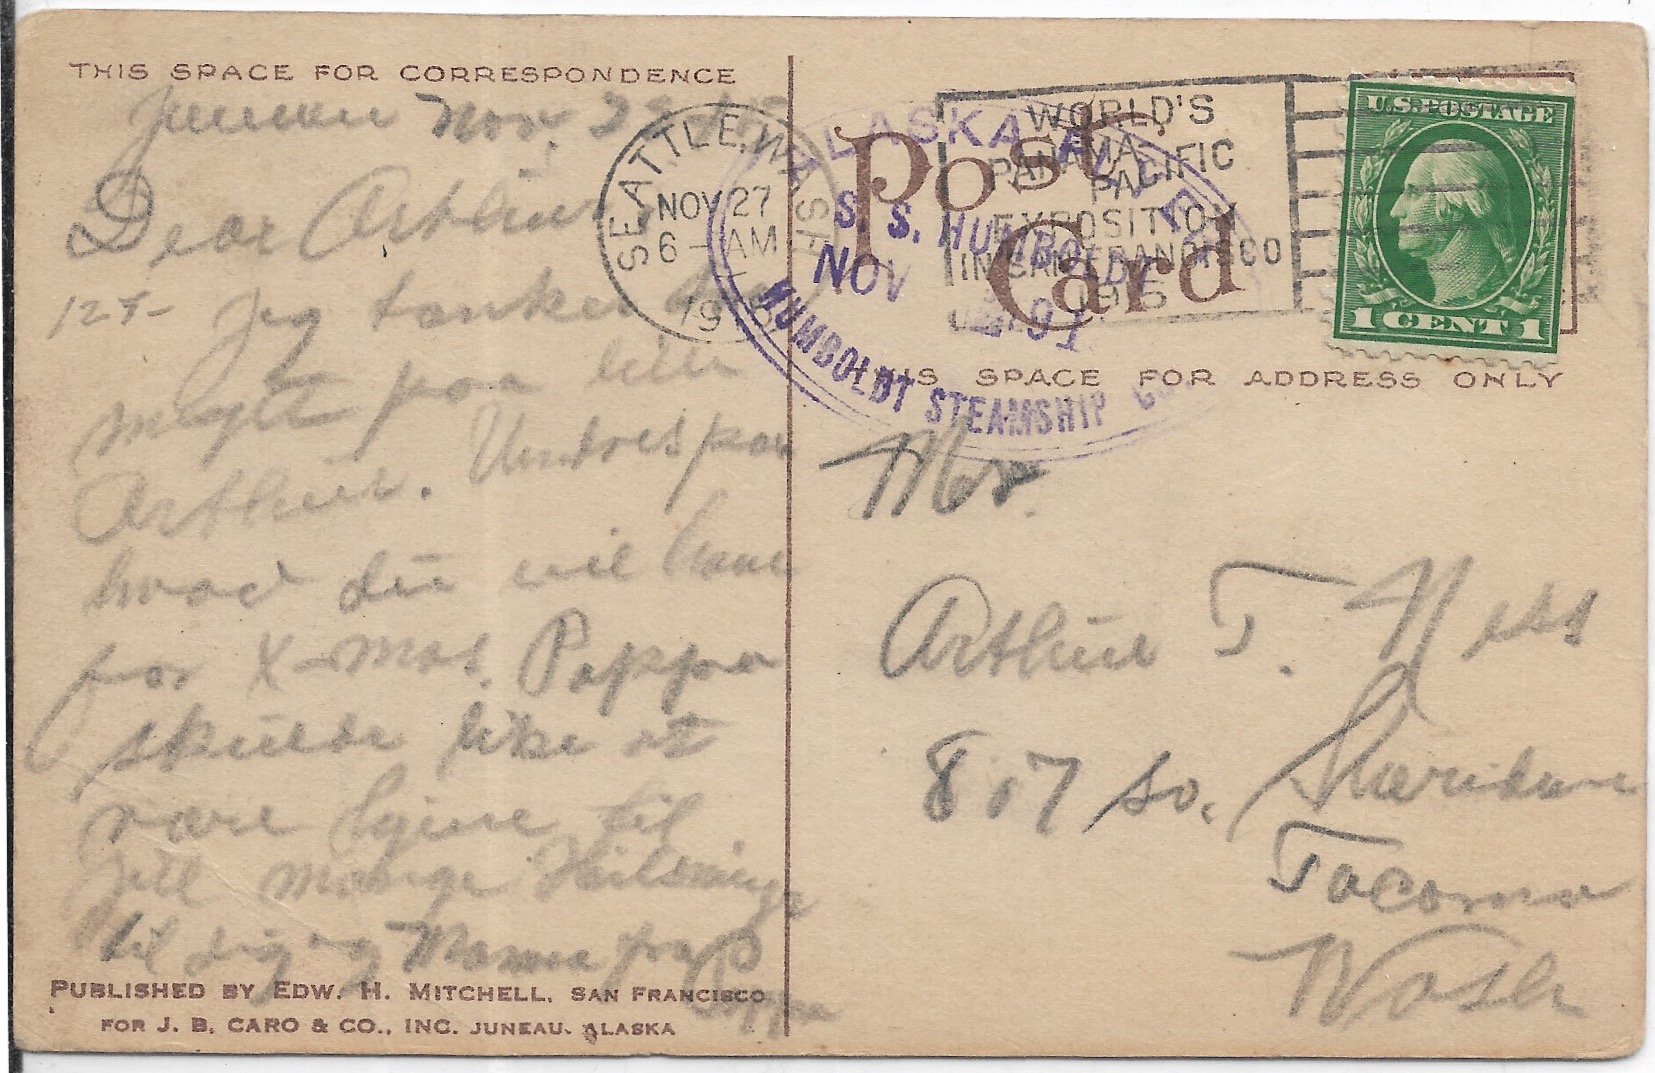 THIS SPACE FOR CORRESPONDENCE
Juneau Nov. 2
Dear Arthur
Jeg tanker
meget paa lille
Arthur. Undres paa
hvad du vil have
for X-mas. Pappa
skulde like at
være hjeme til
Jul mange Hilsninge
til dig og Mamma fra P
Pappa
PUBLISHED BY EDW. H. MITCHELL, SAN FRANCISCO
FOR J. B. CARO & CO., INC. JUNEAU, ALASKA
SEATTLE, WASH
NOV 27
6 - AM
19
WORLD'S
PANAMA
PACIFIC
EXPOSITION
IN SAN FRANCISCO
1915
ALASKA
S. S. HUMBOLDT
NOV
HUMBOLDT STEAMSHIP CO
Post Card
U.S. POSTAGE
1 CENT 1
THIS SPACE FOR ADDRESS ONLY
Mr.
Arthur T. Ness
817 So. Sheridan
Tacoma
Wash